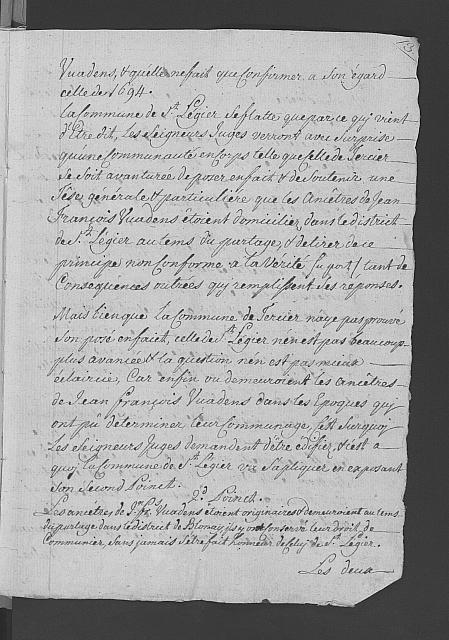 13.
Vuadens, & qu'elle ne fait que Confirmer a Son égard
celle de 1694.
La Commune de S.t Légier se flatte que par ce qui vient
d'Etre dit, Les Seigneurs Juges verront avec Surprise
qu'une Communauté en Corps telle que Celle de Tercier
se Soit avanturée de poser en fait & de Soutenir une
Tése générale & particuliére que les Ancétres de Jean
François Vuadens étoient domiciliez dans le district
de S.t Légier au tems du partage, & de tirer de ce
principe non Conforme a la Verité tant de
Consequences outrées qui remplissent ses réponses.
Mais bien que la Commune de Tercier n'aye pas prouvé
Son posé en fait, celle de S.t Légier n'en est pas beaucoup
plus avancée & la question n'en est pas mieux
éclaircie, Car enfin ou demeuroient les ancêtres
de Jean François Vuadens dans les Epoques qui
ont pu déterminer leur Communage, c'est Surquoy
Les Seigneurs Juges demandent d'être édifiez, & c'est a
quoj la Commune de S.t Légier va s'apliquer en exposant
Son Second Poinct.
2.d Poinct.
Les ancetres de J.n F.s Vuadens étoient originaires & demeuroient au tems
du partage dans le district de Blonay, ils y ont Conservé leur droit de
Communier, Sans jamais s'être fait honneur de Celuy de S.t Légier.
Les deux